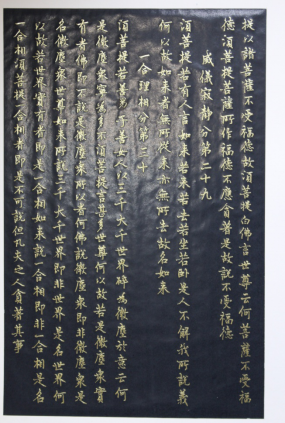 提以諸菩薩不受福德故須菩提白佛言世尊云何菩薩不受福
德須菩提菩薩所作福德不應貪著是故說不受福德
威儀寂靜分第二十九
須菩提若有人言如來若來若去若坐若臥是人不解我所說義
何以故如來者無所從來亦無所去故名如來
一合理相分第三十
須菩提若善男子善女人以三千大千世界碎為微塵於意云何
是微塵眾寧為多不須菩提言甚多世尊何以故若是微塵眾實
有者佛即不說是微塵眾所以者何佛說微塵眾即非微塵眾是
名微塵眾世尊如來所說三千大千世界即非世界是名世界何
以故若世界實有者即是一合相如來說一合相即非一合相是名
一合相須菩提一合相者即是不可說但凡夫之人貪著其事